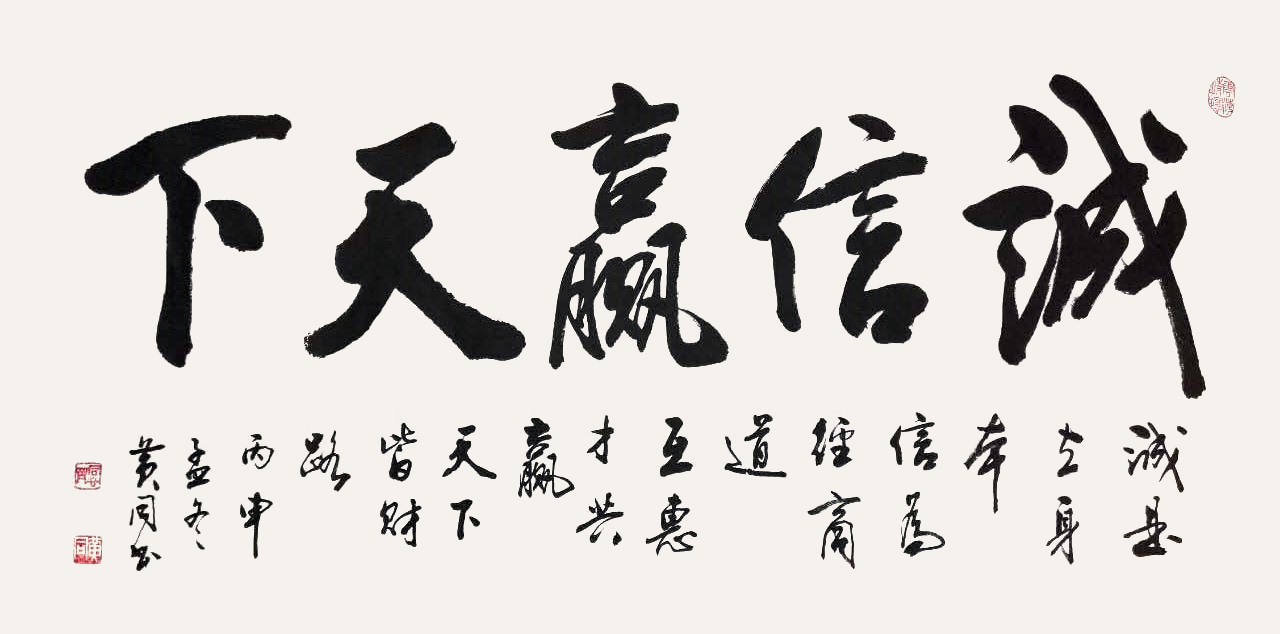 誠信贏天下
誠是
立身
本
信為
經商
道
互惠
才共
贏
天下
皆財
路
丙申
孟冬
黄同书